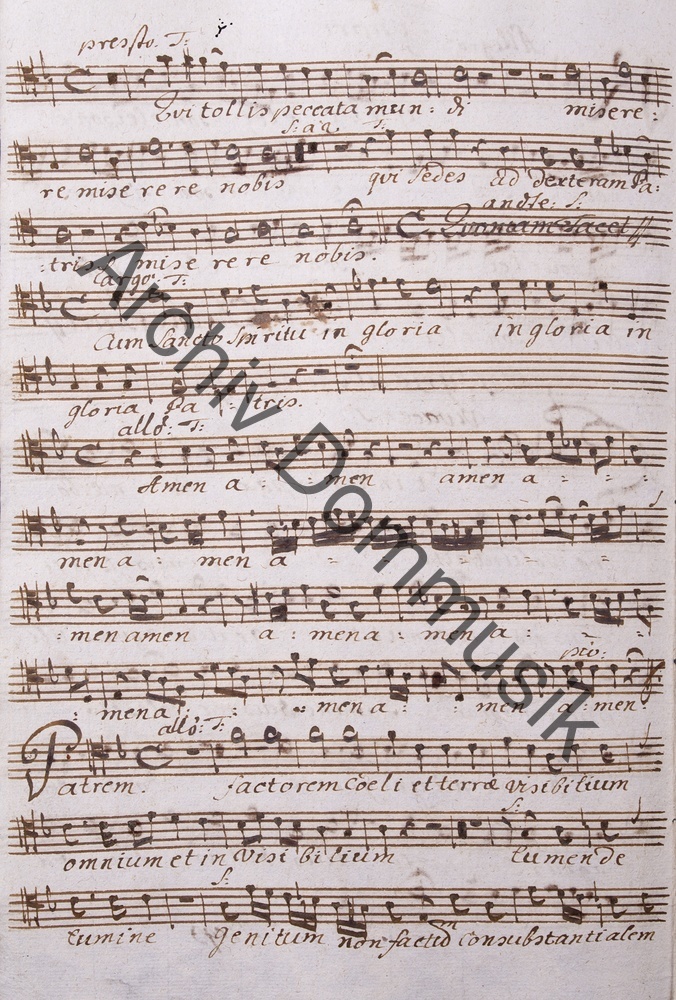 presto. T:
Qui tollis peccata mun: di misere:
S: a 2. T:
re misere re nobis qui sedes ad dexteram Pa:
andte: S:
Quoniam tacet
:tris misere re nobis.
largo: T:
Cum Sancto Spiritu in gloria in gloria in
gloria Pa : tris.
allo: T:
Amen a : : men amen a : :
men a : men a : :
: men amen a : men a : men a : :
pto:
: men a : : men a : : men a : men.
allo: T:
Patrem. factorem Coeli et terræ visibilium
S:
omnium et in visi bi lium lumen de
S:
lumine genitum non factum Consubstantialem
Archiv Dommusik